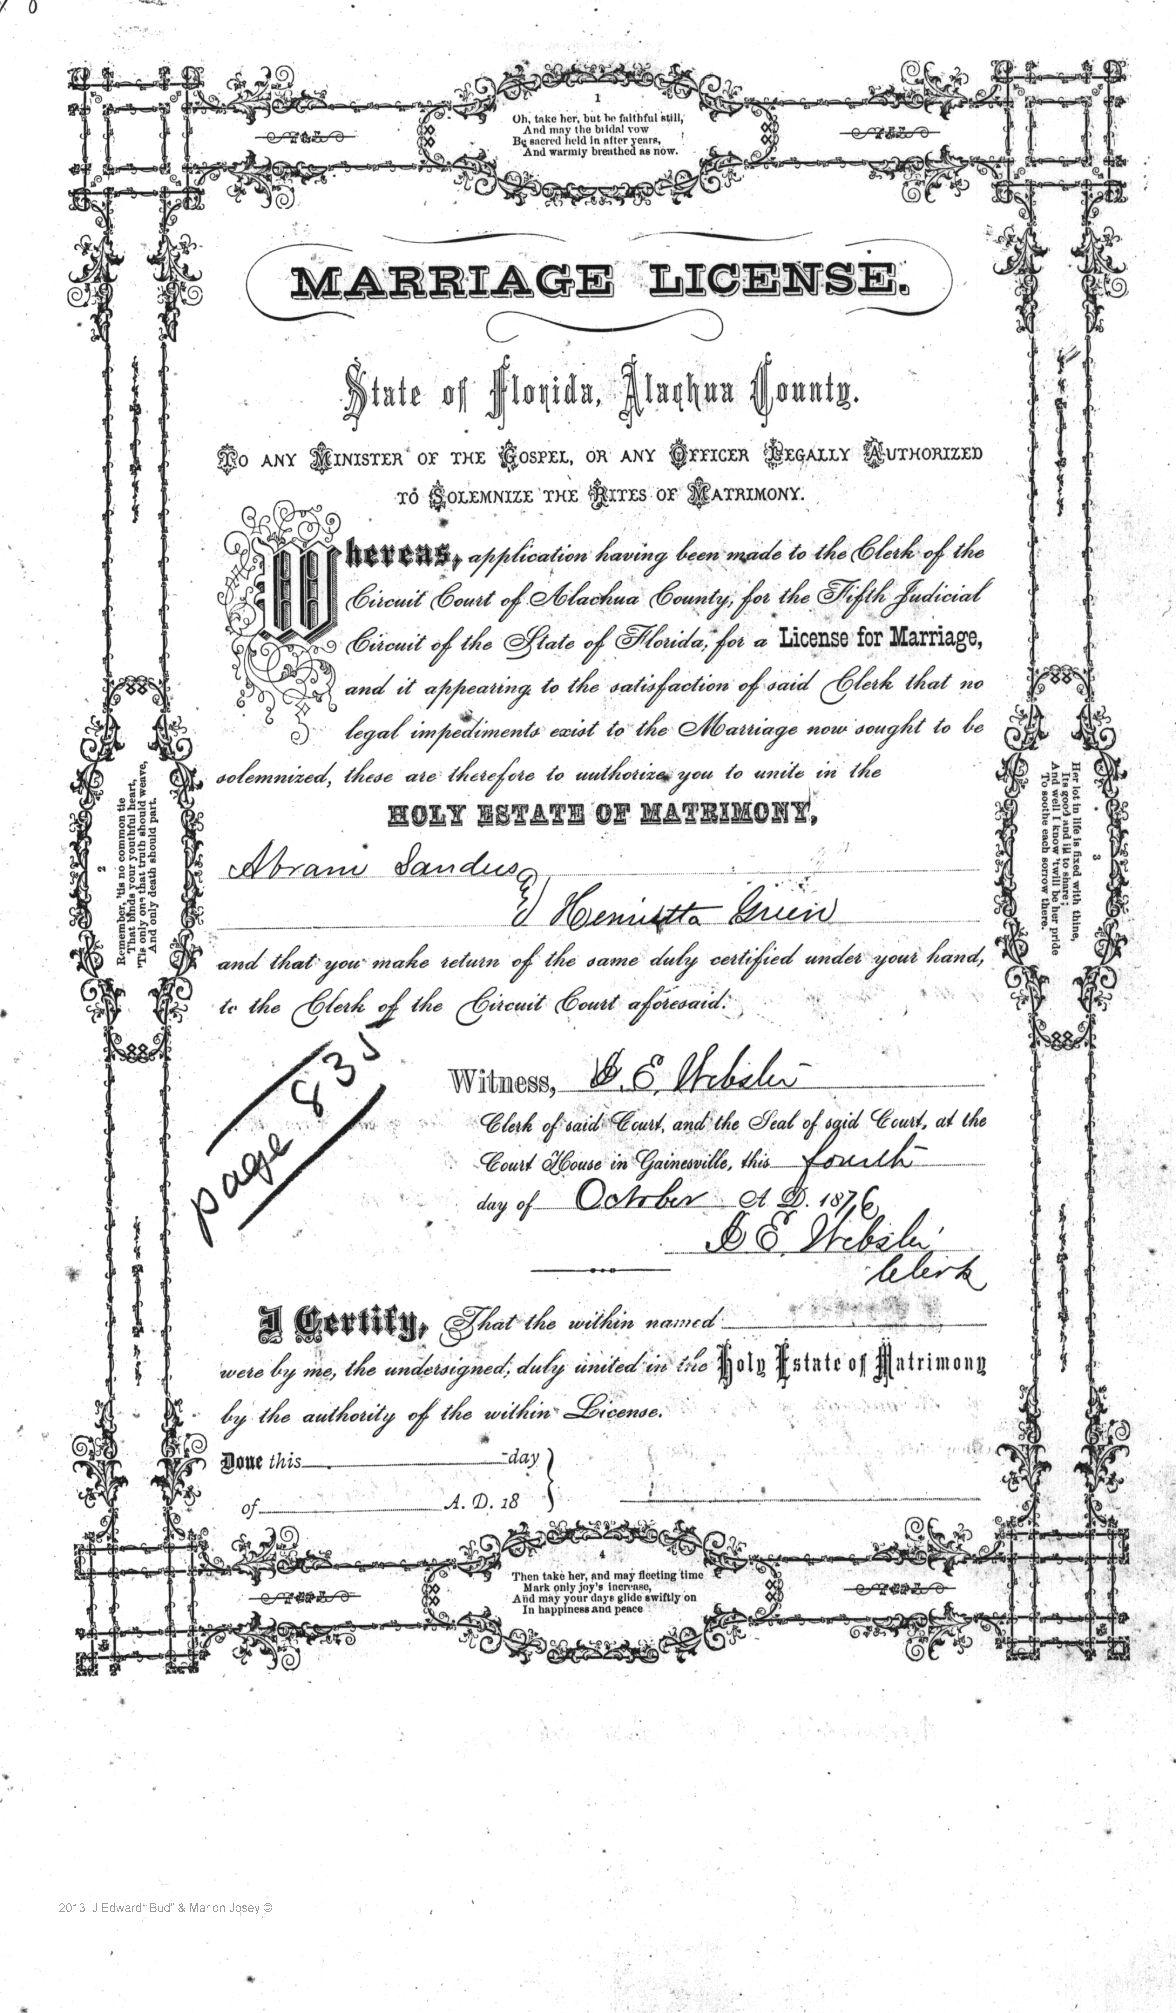 1
Oh, take her, but be faithful still,
And may the bridal vow
Be sacred held in after years,
And warmly breathed as now.
MARRIAGE LICENSE.
State of Florida, Alachua County.
TO ANY MINISTER OF THE GOSPEL, OR ANY OFFICER LEGALLY AUTHORIZED
TO SOLEMNIZE THE RITES OF MATRIMONY.
Whereas, application having been made to the Clerk of the
Circuit Court of Alachua County, for the Fifth Judicial
Circuit of the State of Florida, for a License for Marriage,
and it appearing to the satisfaction of said Clerk that no
legal impediments exist to the Marriage now sought to be
solemnized, these are therefore to authorize you to unite in the
HOLY ESTATE OF MATRIMONY,
Abram Sanders
Henrietta Green
and that you make return of the same duly certified under your hand,
to the Clerk of the Circuit Court aforesaid.
2
Remember, 'tis no common tie
That binds your youthful heart,
'Tis only one that truth should weave,
And only death should part.
3
Her lot in life is fixed with thine,
Its good and ill to share;
And well I know 'twill be her pride
To soothe each sorrow there.
page 835
Witness, E. Webster
Clerk of said Court, and the Seal of said Court, at the
Court House in Gainesville, this fourth
day of October A. D. 1876
E. Webster
Clerk
I Certify, That the within named
were by me, the undersigned, duly united in the Holy Estate of Matrimony
by the authority of the within License.
Done this day
of A. D. 18
4
Then take her, and may fleeting time
Mark only joy's increase,
And may your days glide swiftly on
In happiness and peace
2013 J Edward "Bud" & Marion Josey ©